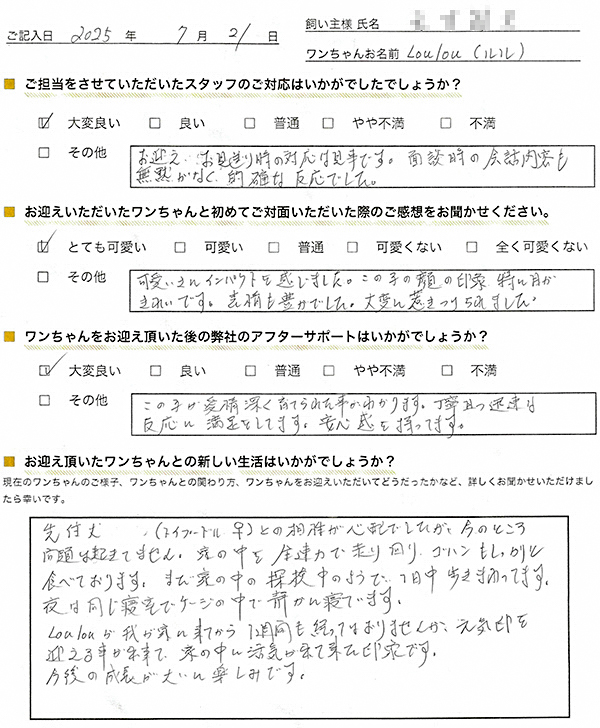 ご記入日 2025 年 7 月 21 日
飼い主様 氏名
ワンちゃんお名前 Loulou (ルル)
ご担当をさせていただいたスタッフのご対応はいかがでしたでしょうか？
大変良い 良い 普通 やや不満 不満
その他
お迎え、お見送り時の対応は見事です。面談時の会話内容も
無駄がなく、的確な反応でした。
お迎えいただいたワンちゃんと初めてご対面いただいた際のご感想をお聞かせください。
とても可愛い 可愛い 普通 可愛くない 全く可愛くない
その他
可愛いさにインパクトを感じました。この子の顔の印象 特に目が
きれいです。表情も豊かでした。大変に惹きつけられました。
ワンちゃんをお迎え頂いた後の弊社のアフターサポートはいかがでしょうか？
大変良い 良い 普通 やや不満 不満
その他
この子が愛情深く育てられた事がわかります。丁寧且つ迅速な
反応に満足をしてます。安心感を持ってます。
お迎え頂いたワンちゃんとの新しい生活はいかがでしょうか？
現在のワンちゃんのご様子、ワンちゃんとの関わり方、ワンちゃんをお迎えいただいてどうだったかなど、詳しくお聞かせいただけまし
たら幸いです。
先住犬 (トイプードル ♀)との相性が心配でしたが、今のところ
問題は起きてません。家の中を全速力で走り回り、ゴハンもしっかりと
食べております。まだ家の中の探検中のようで、1日中歩きまわってます。
夜は同じ寝室でケージの中で静かに寝ています。
Loulouが我が家に来てから1週間も経っておりませんが、元気印を
迎える事が出来て、家の中に活気が出て来た印象です。
今後の成長が大いに楽しみです。